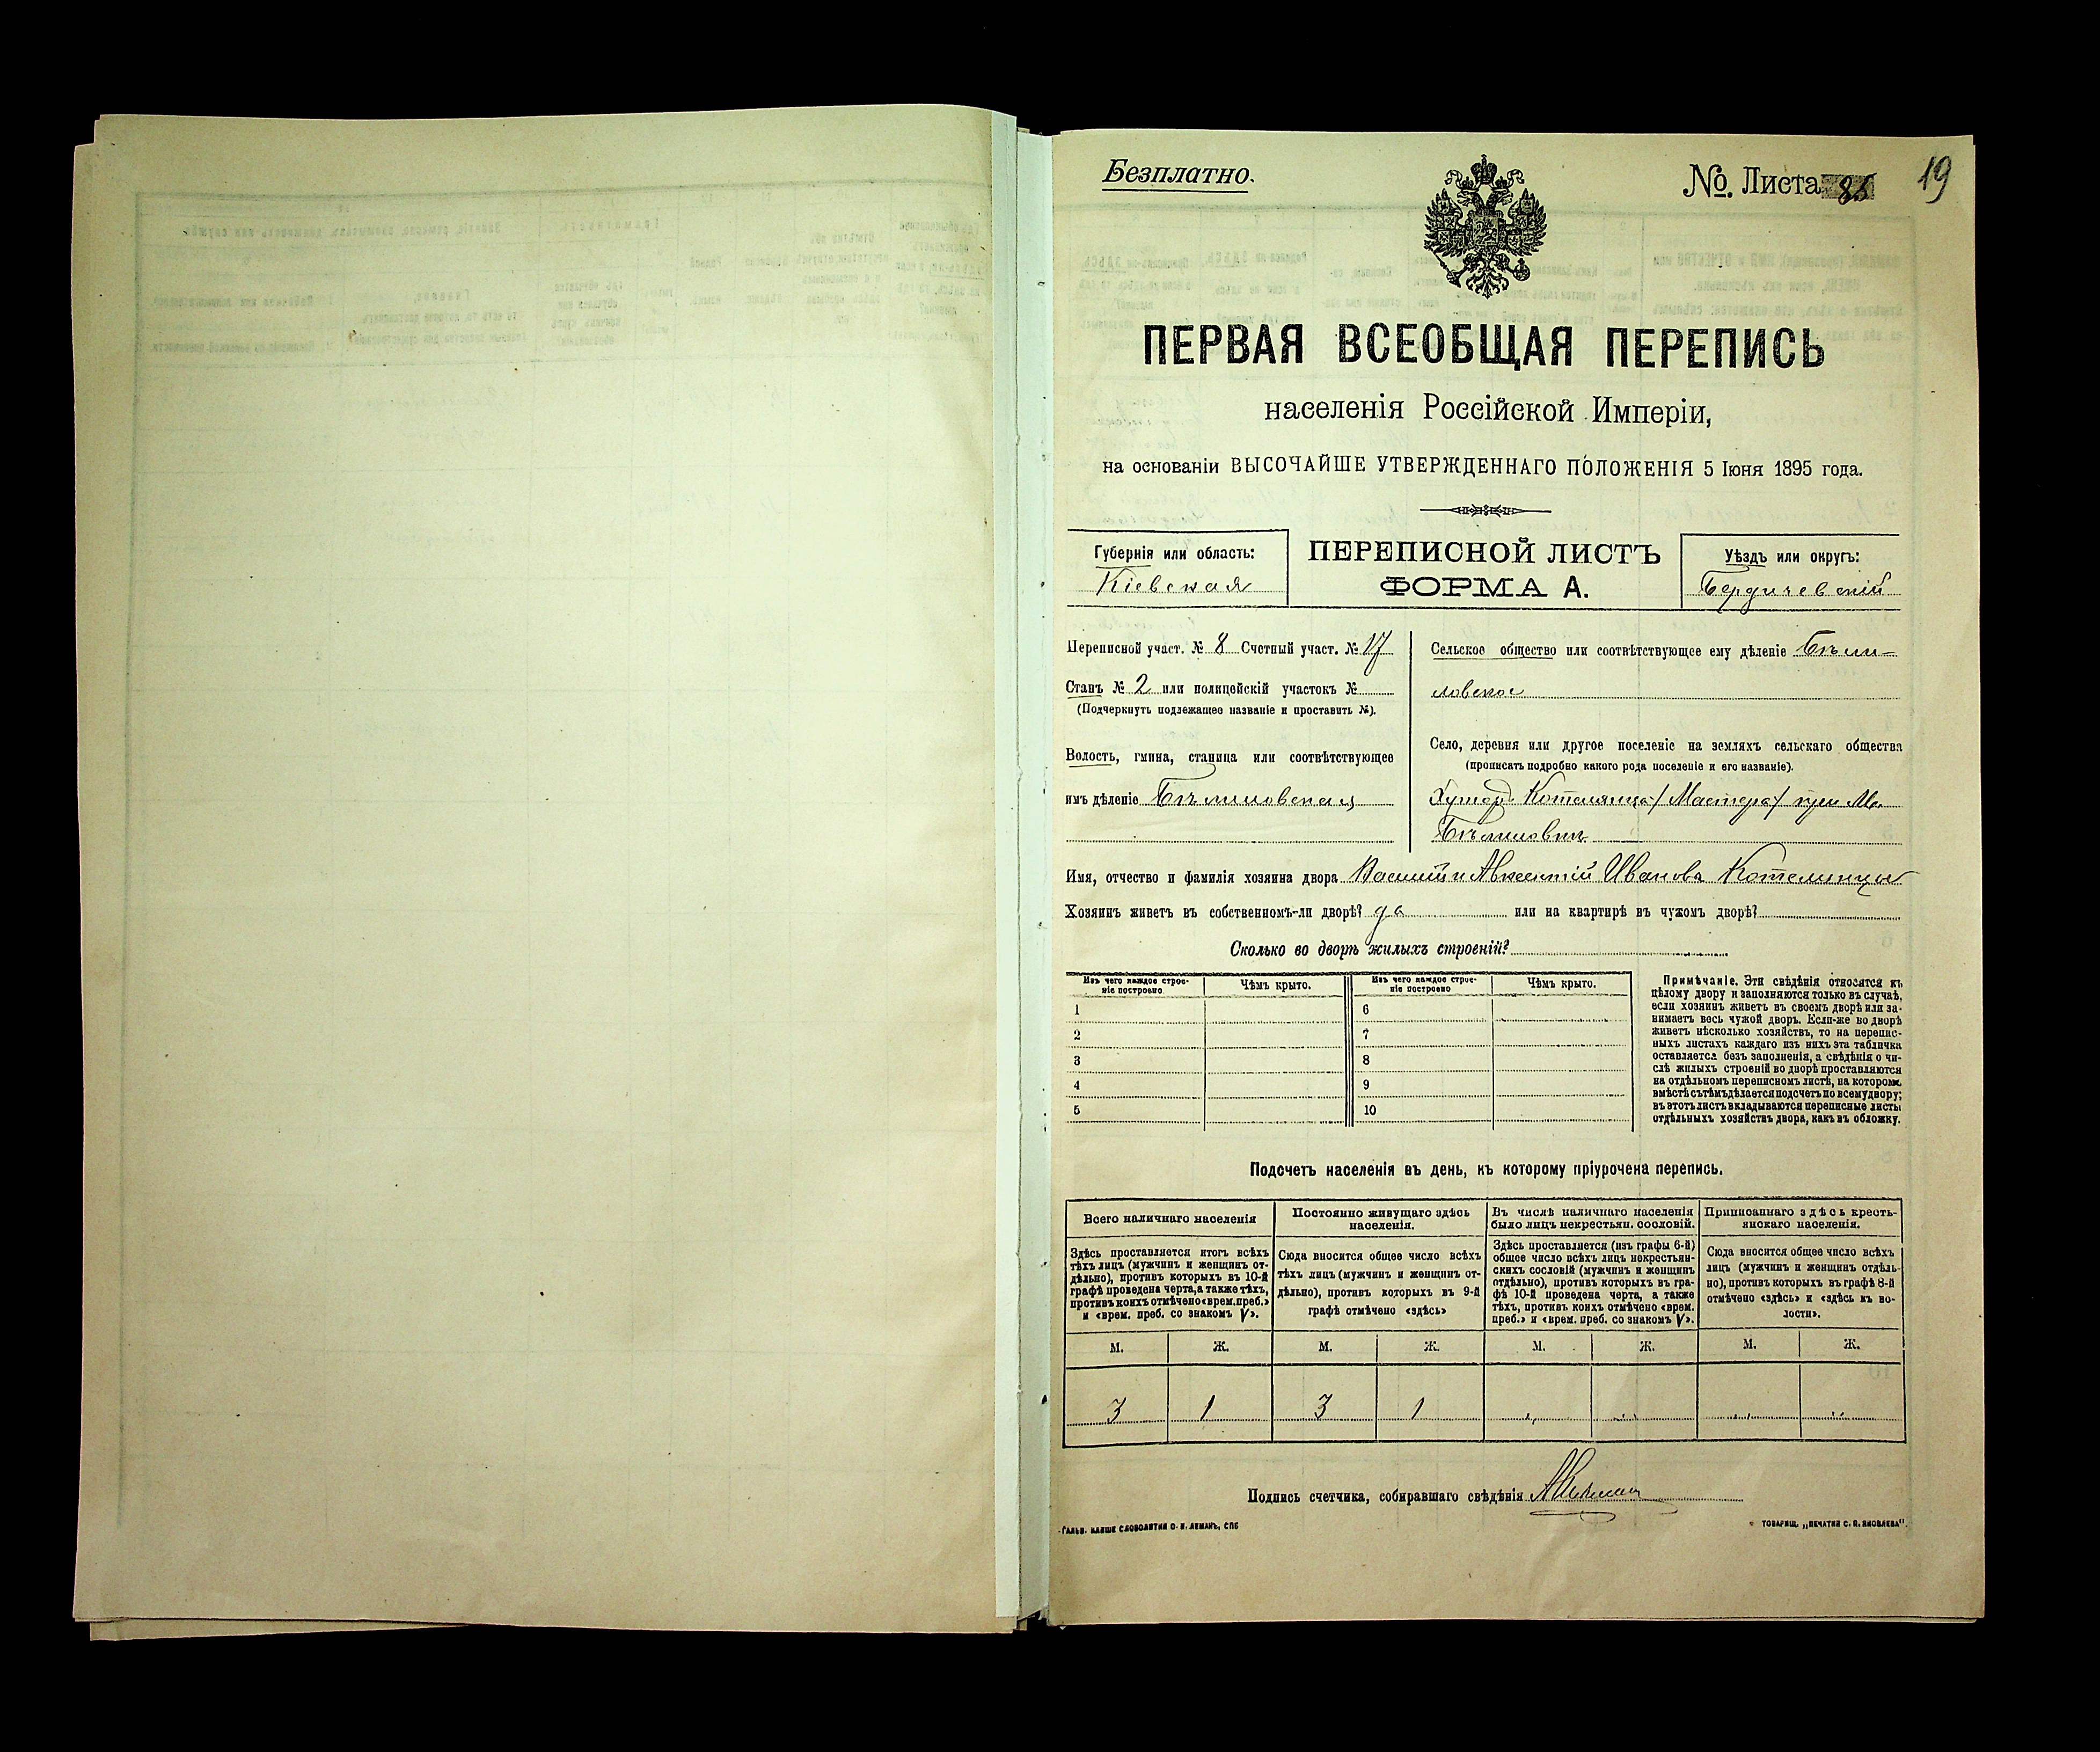 Безплатно.
№. Листа
19
ПЕРВАЯ ВСЕОБЩАЯ ПЕРЕПИСЬ
населенія Россійской Имперіи,
на основаніи ВЫСОЧАЙШЕ УТВЕРЖДЕННАГО ПОЛОЖЕНІЯ 5 Іюня 1895 года.
Губернія или область:
Кіевская
ПЕРЕПИСНОЙ ЛИСТЪ
ФОРМА А.
Уѣздъ или округъ:
Бердичевскій
Переписной участ. № 8 Счетный участ. № 17
Станъ № 2 или полицейскій участокъ №
(Подчеркнуть подлежащее названіе и проставить №).
Волость, гмина, станица или соотвѣтствующее
имъ дѣленіе Бѣлиловская
Сельское общество или соотвѣтствующее ему дѣленіе Бѣли-
ловское
Село, деревня или другое поселеніе на земляхъ сельскаго общества
(прописать подробно какого рода поселеніе и его названіе).
Хуторъ Котелянца /Мастера/ при М.
Бѣлиловкѣ
Имя, отчество и фамилія хозяина двора Василій и Авксентій Иванова Котелянцы
Хозяинъ живетъ въ собственномъ-ли дворѣ? да или на квартирѣ въ чужомъ дворѣ?
Сколько во дворѣ жилыхъ строеній?
Изъ чего каждое строе-
ніе построено
Чѣмъ крыто.
Изъ чего каждое строе-
ніе построено
Чѣмъ крыто.
1 6
2 7
3 8
4 9
5 10
Примѣчаніе. Эти свѣдѣнія относятся къ
цѣлому двору и заполняются только въ случаѣ,
если хозяинъ живетъ въ своемъ дворѣ или за-
нимаетъ весь чужой дворъ. Если-же во дворѣ
живетъ нѣсколько хозяйствъ, то на перепис-
ныхъ листахъ каждаго изъ нихъ эта табличка
оставляется безъ заполненія, а свѣдѣнія о чи-
слѣ жилыхъ строеній во дворѣ проставляются
на отдѣльномъ переписномъ листѣ, на которомъ
вмѣстѣ съ тѣмъ дѣлается подсчетъ по всему двору;
въ этотъ листъ вкладываются переписные листы
отдѣльныхъ хозяйствъ двора, какъ въ обложку.
Подсчетъ населенія въ день, къ которому пріурочена перепись.
Всего наличнаго населенія
Здѣсь проставляется итогъ всѣхъ
тѣхъ лицъ (мужчинъ и женщинъ от-
дѣльно), противъ которыхъ въ 10-й
графѣ проведена черта, а также тѣхъ,
противъ коихъ отмѣчено «врем. преб.»
и «врем. преб. со знакомъ V».
Постоянно живущаго здѣсь
населенія.
Сюда вносится общее число всѣхъ
тѣхъ лицъ (мужчинъ и женщинъ от-
дѣльно), противъ которыхъ въ 9-й
графѣ отмѣчено «здѣсь»
Въ числѣ наличнаго населенія
было лицъ некрестьян. сословій.
Здѣсь проставляется (изъ графы 6-й)
общее число всѣхъ лицъ некрестьян-
скихъ сословій (мужчинъ и женщинъ
отдѣльно), противъ которыхъ въ гра-
фѣ 10-й проведена черта, а также
тѣхъ, противъ коихъ отмѣчено «врем.
преб.» и «врем. преб. со знакомъ V».
Приписаннаго здѣсь кресть-
янскаго населенія.
Сюда вносится общее число всѣхъ
лицъ (мужчинъ и женщинъ отдѣль-
но), противъ которыхъ въ графѣ 8-й
отмѣчено «здѣсь» и «здѣсь къ во-
лости».
М. Ж. М. Ж. М. Ж. М. Ж.
3 1 3 1 „ „ „ „
Подпись счетчика, собиравшаго свѣдѣнія
ГАЛЬВ. КЛИШЕ СЛОВОЛИТНИ О. И. ЛЕМАНЪ, СПБ
ТОВАРИЩ. „ПЕЧАТНЯ С. П. ЯКОВЛЕВА".